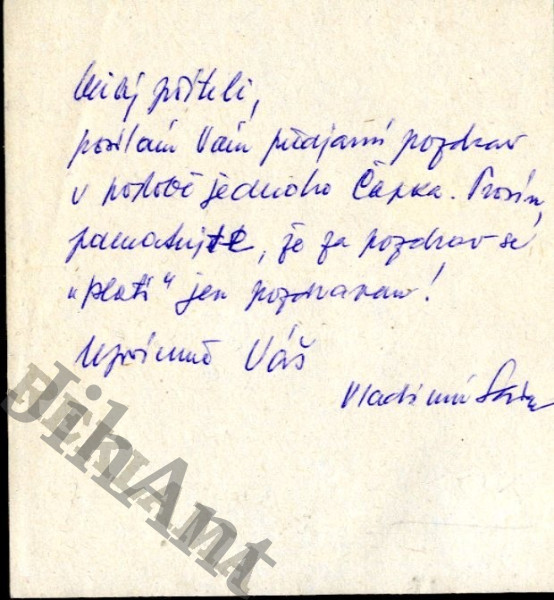 Milý příteli,
posílám Vám předjarní pozdrav
v podobě jednoho Čapka. Prosím,
pamatujte, že za pozdrav se
„platí“ jen pozdravem!
Upřímně Váš
Vladimír
JikiAnt
JikiAnt